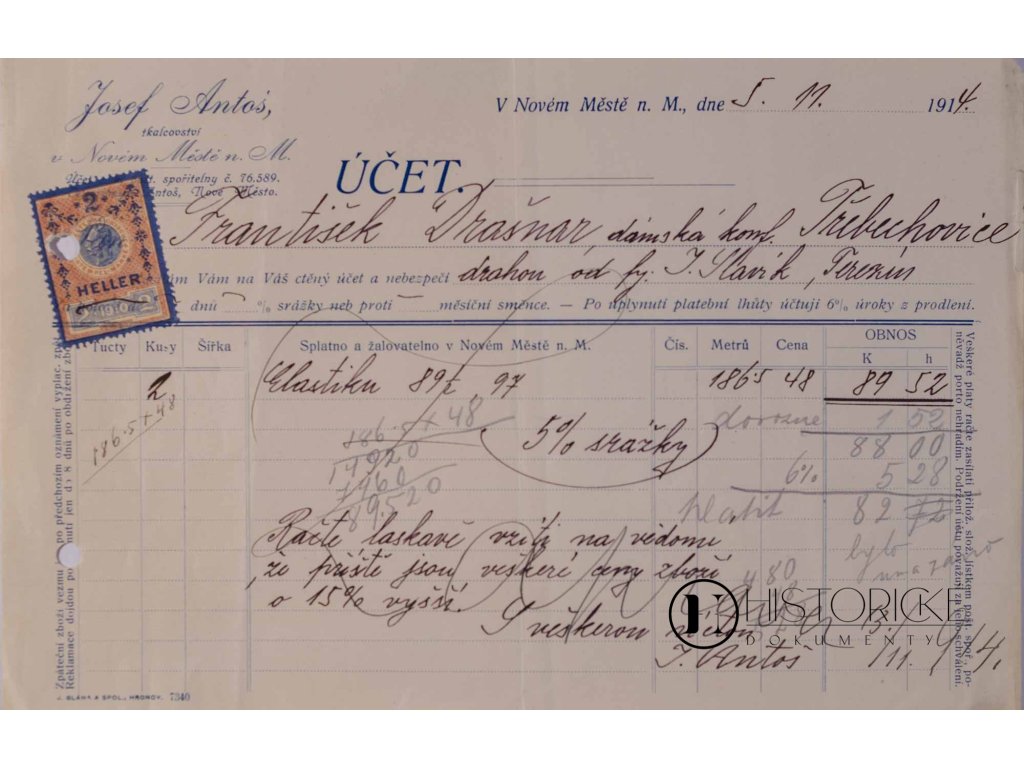 Josef Antoš,
tkalcovství
v Novém Městě n. M.
spořitelny č. 76.589.
Antoš, Nové Město.
V Novém Městě n. M., dne 5. 11. 1914.
ÚČET.
2
HELLER
1910
František Drašnar, dámská konf. Třebechovice
Vám na Váš ctěný účet a nebezpečí drahou od fy. J. Slavík, Terezín
dnů % srážky neb proti měsíční směnce. — Po uplynutí platební lhůty účtuji 6% úroky z prodlení.
Tucty Kusy Šířka Splatno a žalovatelno v Novém Městě n. M. Čís. Metrů Cena OBNOS
K h
2 Elastiku 97 186·5 48 89 52
186·5 × 48
186·5 × 48
14920
7460
89.520
5% srážky
1 52
88 00
6% 5 28
82 72
Račte laskavě vzíti na vědomí
že příště jsou veškeré ceny zboží
o 15% vyšší.
bylo
480
S veškerou úctou
J. Antoš
HISTORICKÉ
DOKUMENTY
Zpáteční zboží vezmu po předchozím oznámení vyplac. zpět
Reklamace dojdou po nutí jen do 8 dnů po obdržení zboží
Veškeré platy račte zasílati přilož. slož. lístkem post. spoř., po-
něvadž porto nehradím. Podržení účtu považuji za jeho schválení.
SLÁMA A SPOL., HRONOV. 7340